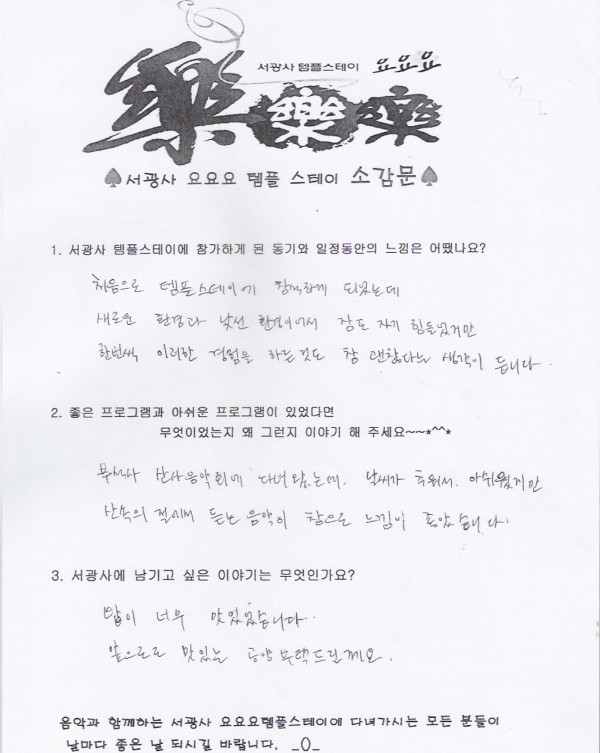 서광사 템플스테이 요요요
樂 樂 樂
♠서광사 요요요 템플 스테이 소감문♠
1. 서광사 템플스테이에 참가하게 된 동기와 일정동안의 느낌은 어땠나요?
처음으로 템플스테이에 참석하게 되었는데
새로운 환경과 낯선 환경이어서 잠도 자기 힘들었지만
한번씩 이러한 경험을 하는것도 참 괜찮다는 생각이 듭니다.
2. 좋은 프로그램과 아쉬운 프로그램이 있었다면
무엇이었는지 왜 그런지 이야기 해 주세요~~*^^*
부석사 산사음악회에 다녀왔는데. 날씨가 추워서. 아쉬웠지만
산속의 절에서 듣는 음악이 참으로 느낌이 좋았습니다.
3. 서광사에 남기고 싶은 이야기는 무엇인가요?
밥이 너무 맛있었습니다.
앞으로도 맛있는 공양 부탁드릴께요.
음악과 함께하는 서광사 요요요템플스테이에 다녀가시는 모든 분들이
날마다 좋은 날 되시길 바랍니다. _()_